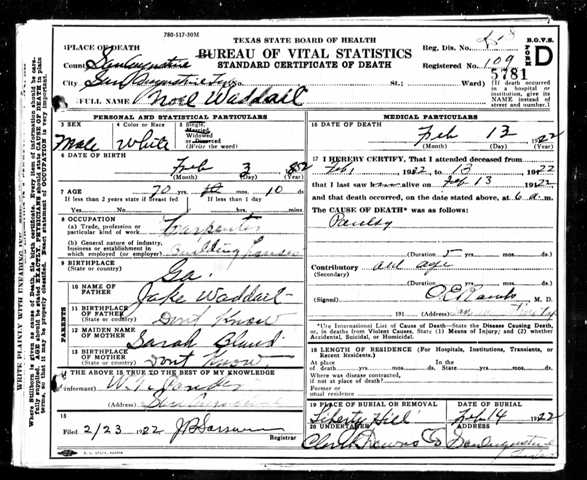 780-517-30M
TEXAS STATE BOARD OF HEALTH
BUREAU OF VITAL STATISTICS
STANDARD CERTIFICATE OF DEATH
B.O.V.S.
FORM
D
Reg. Dis. No.
Registered No. 109
5781
(If death occurred in a hospital or institution, give its NAME instead of street and number.)
1 PLACE OF DEATH
County San Augustine
City San Augustine Tex
St.; Ward
2 FULL NAME Noel Waddail
PERSONAL AND STATISTICAL PARTICULARS
3 SEX
Male
4 Color or Race
White
5 Single, Married, Widowed or Divorced
(Write the word)
6 DATE OF BIRTH
Feb 3 852
(Month) (Day) (Year)
7 AGE
70 yrs. mo. 10 ds.
If less than 2 years state if breast fed
If less than 1 day
Yes No hrs. min.
8 OCCUPATION
(a) Trade, profession or particular kind of work Carpenter
(b) General nature of industry, business or establishment in which employed (or employer) Building houses
9 BIRTHPLACE
(State or country) Ga.
PARENTS
10 NAME OF FATHER Jake Waddail
11 BIRTHPLACE OF FATHER
(State or country) Dont Know
12 MAIDEN NAME OF MOTHER Sarah
13 BIRTHPLACE OF MOTHER
(State or country) Dont Know
14 THE ABOVE IS TRUE TO THE BEST OF MY KNOWLEDGE
(Informant)
(Address) San Augustine
15
Filed 2/23 1922
Registrar
MEDICAL PARTICULARS
16 DATE OF DEATH
Feb 13 1922
(Month) (Day) (Year)
17 I HEREBY CERTIFY, That I attended deceased from
Feb 1 1922 to 13 1922
that I last saw alive on Feb 13 1922
and that death occurred, on the date stated above, at 6 a.m.
The CAUSE OF DEATH* was as follows:
(Duration) 5
Contributory old age
(Secondary)
(Duration)
(Signed) M. D.
191 (Address)
*Use International List of Cause of Death—State the Disease Causing Death, or, in deaths from Violent Causes, State (1) Means of Injury; and (2) whether Accidental, Suicidal, or Homicidal.
18 LENGTH OF RESIDENCE (For Hospitals, Institutions, Transients, or Recent Residents.)
At place of death yrs. mos. ds.
In the State yrs. mos. ds.
Where was disease contracted, if not at place of death?
Former or usual residence
19 PLACE OF BURIAL OR REMOVAL
Liberty Hill
DATE OF BURIAL
Feb 14 1922
20 UNDERTAKER
Clark Downs Co
ADDRESS
San Augustine